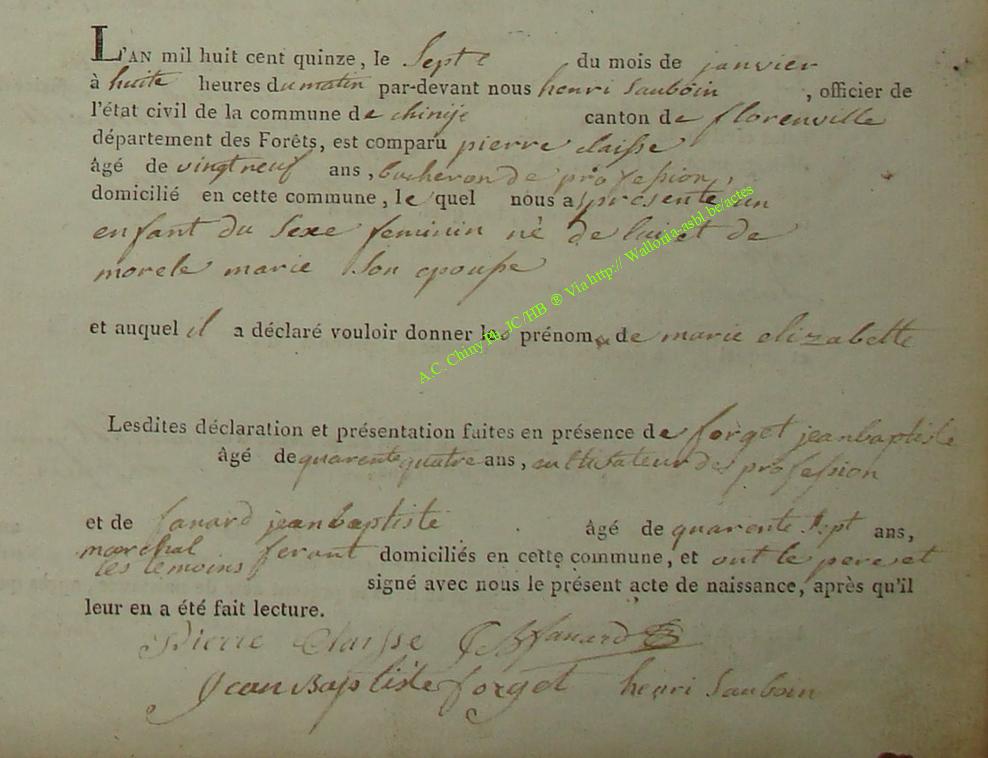 L'AN mil huit cent quinze, le Sept du mois de janvier
à huite heures du matin par-devant nous henri Sauboin, officier de
l'état civil de la commune de chinije canton de florenville
département des Forêts, est comparu pierre claisse
âgé de vingtneuf ans, bucheron de profession,
domicilié en cette commune, le quel nous a présenté un
enfant du sexe feminin né de lui et de
morele marie son epouse
et auquel il a déclaré vouloir donner les prénoms de marie elizabette
Lesdites déclaration et présentation faites en présence de forget jeanbaptiste
âgé de quarente quatre ans, cultivateur de profession
et de fanard jeanbaptiste âgé de quarente sept ans,
marchal ferant domiciliés en cette commune, et ont le pere et
les temoins signé avec nous le présent acte de naissance, après qu'il
leur en a été fait lecture.
Pierre Claisse JB fanard
Jean Baptiste forget henri Sauboin
A.C. Chiny Ph. JC/HB ® Via http:// Wallonia-asbl.be/actes